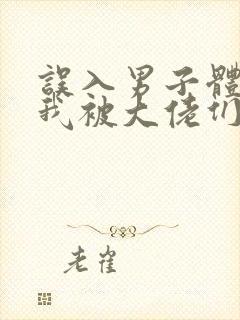 誤入男子體
我被大佬们
老雀